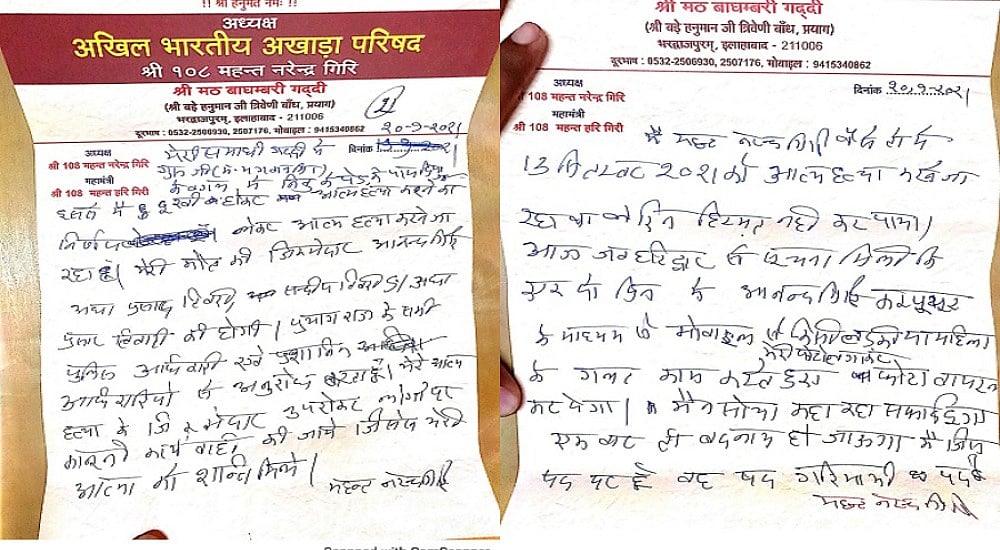 !! श्री हनुमते नमः !!
अध्यक्ष
अखिल भारतीय अखाड़ा परिषद
श्री १०८ महन्त नरेन्द्र गिरि
श्री मठ बाघम्बरी गद्दी
(श्री बड़े हनुमान जी त्रिवेणी बाँध, प्रयाग)
भरद्वाजपुरम्, इलाहाबाद - 211006
दूरभाष : 0532-2506930, 2507176, मोबाइल : 9415340862
11
२०-९-२०२१
अध्यक्ष
श्री 108 महन्त नरेन्द्र गिरि
महामंत्री
श्री 108 महन्त हरि गिरी
दिनांक
मेरी समाधी गद्दी के
गुरु जी के बगल में नीबू के पेड़ के पास दिया
आत्महत्या करने का
आत्म हत्या करने जा
रहा हूँ। मेरी मौत की जिम्मेदार आनन्द गिरि
आद्या प्रसाद तिवारी संदीप तिवारी आद्या
प्रसाद तिवारी की होगी। प्रयागराज के सभी
पुलिस अधिकारी एवं प्रशासनिक
अधिकारियों से अनुरोध करता हूँ। मेरे आत्म
हत्या के जिम्मेदार उपरोक्त लोगों पर
कानूनी कार्यवाही की जाये जिससे मेरी
आत्मा को शान्ति मिले।
महन्त नरेन्द्र गिरि
श्री मठ बाघम्बरी गद्दी
(श्री बड़े हनुमान जी त्रिवेणी बाँध, प्रयाग)
भरद्वाजपुरम्, इलाहाबाद - 211006
दूरभाष : 0532-2506930, 2507176, मोबाइल : 9415340862
अध्यक्ष
श्री 108 महन्त नरेन्द्र गिरि
महामंत्री
श्री 108 महन्त हरि गिरी
दिनांक २०.९.२०२१
मै महन्त नरेन्द्र गिरि वैसे तो मै
13 सितम्बर २०२१ को आत्म हत्या करने जा
रहा था लेकिन हिम्मत नही कर पाया।
आज जब हरिद्वार से सूचना मिली कि
एक दो दिन में आनन्द गिरि कम्प्यूटर
के माध्यम से मोबाइल से किसी लड़की या महिला
मेरी फोटो लगाकर
के गलत काम करते हुए फोटो वायरल
कर देगा। मैने सोचा कहाँ तक सफाई दूंगा
एक बार तो बदनाम हो जाऊगा मै जिस
पद पर हूँ वह पद गरिमामयी पद है
महन्त नरेन्द्र गिरि